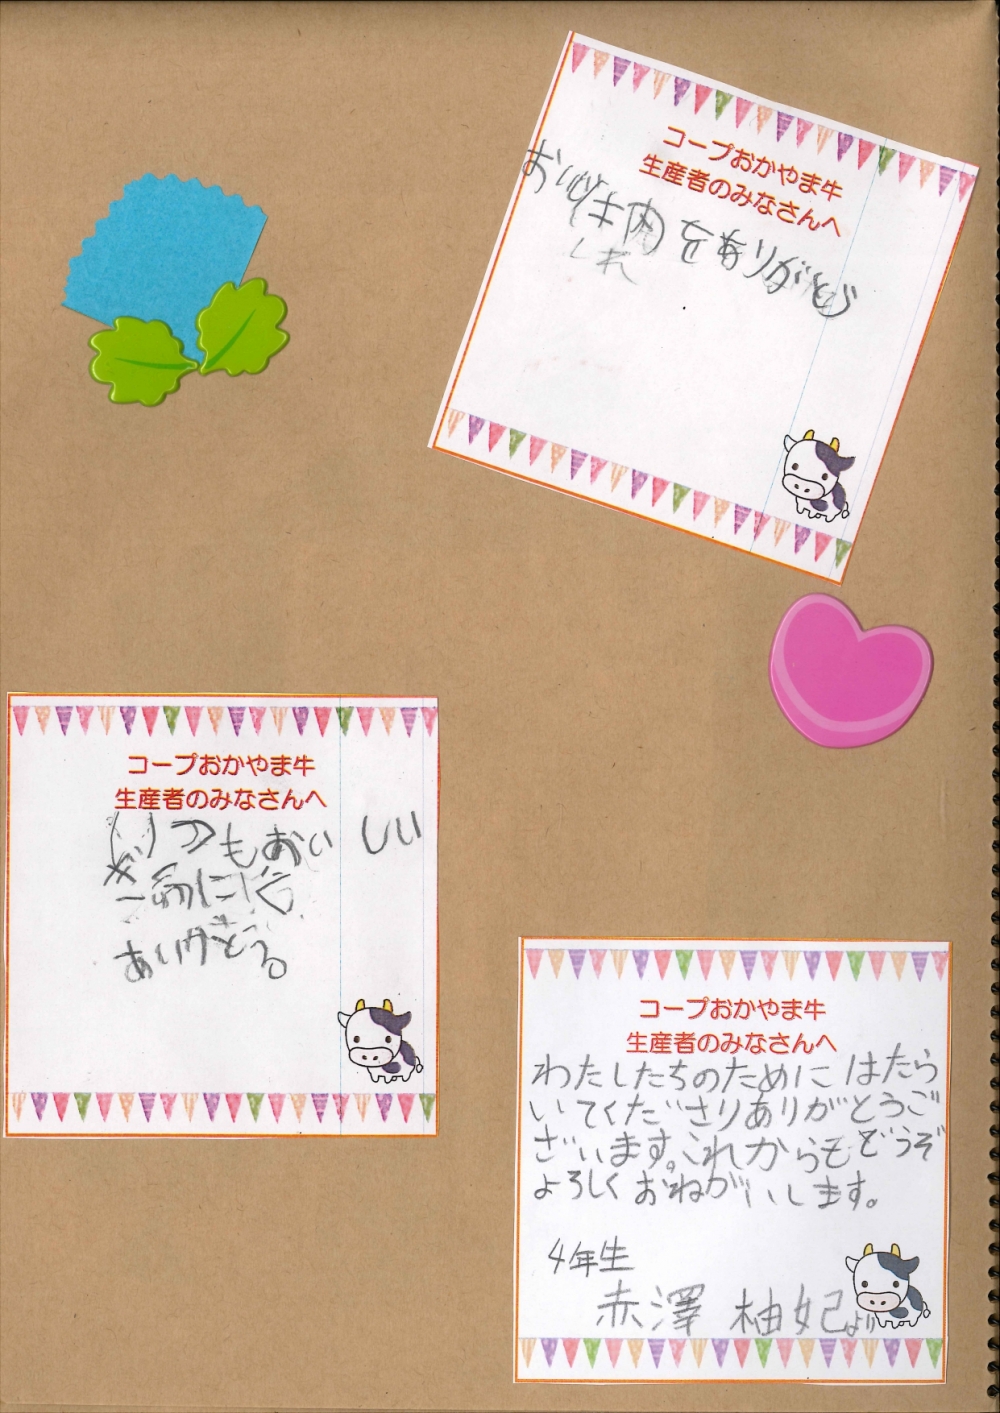 コープおかやま牛
生産者のみなさんへ
牛肉をありがとう
コープおかやま牛
生産者のみなさんへ
いつもおいしい
ありがとう
コープおかやま牛
生産者のみなさんへ
わたしたちのために はたら
いてくださりありがとうご
ざいます。これからもどうぞ
よろしくおねがいします。
4年生
赤澤 柚妃より